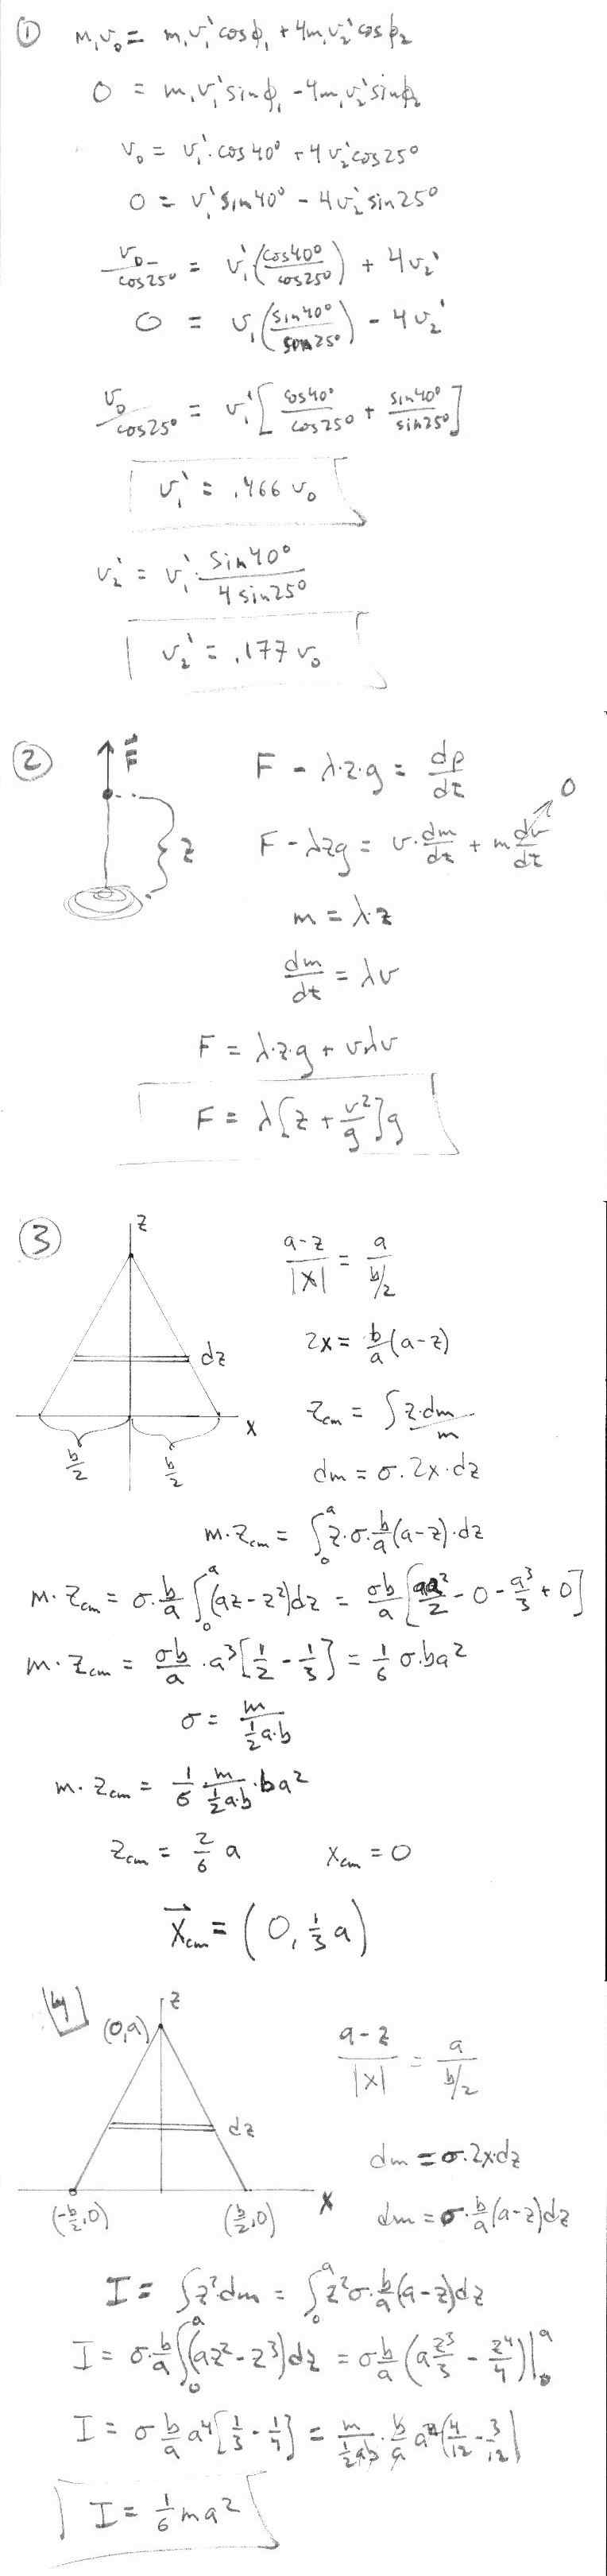 ① m₁v₀ = m₁v₁'cosϕ₁ + 4m₁v₂'cosϕ₂
0 = m₁v₁'sinϕ₁ - 4m₁v₂'sinϕ₂
v₀ = v₁'·cos40° + 4v₂'cos25°
0 = v₁'sin40° - 4v₂'sin25°
v₀/cos25° = v₁'(cos40°/cos25°) + 4v₂'
0 = v₁(sin40°/sin25°) - 4v₂'
v₀/cos25° = v₁'[cos40°/cos25° + sin40°/sin25°]
v₁' = .466 v₀
v₂' = v₁'·sin40°/4sin25°
v₂' = .177 v₀
② F
z
F - λ·z·g = dp/dt
F - λzg = v·dm/dt + m dv/dt 0
m = λ·z
dm/dt = λv
F = λ·z·g + vλv
F = λ[z + v²/g]g
③ z
dz
x
b/2 b/2
a-z/|x| = a/b/2
2x = b/a(a-z)
z_cm = ∫z·dm/m
dm = σ·2x·dz
m·z_cm = ∫₀ᵃ z·σ·b/a(a-z)·dz
m·z_cm = σ·b/a ∫₀ᵃ(az-z²)dz = σb/a [aa²/2 - 0 - a³/3 + 0]
m·z_cm = σb/a·a³[1/2 - 1/3] = 1/6 σ·ba²
σ = m/½a·b
m·z_cm = 1/6 m/½a·b·ba²
z_cm = 2/6 a x_cm = 0
x⃗_cm = (0, 1/3 a)
4 z
(0,a)
dz
x
(-b/2,0) (b/2,0)
a-z/|x| = a/b/2
dm = σ·2x·dz
dm = σ·b/a(a-z)dz
I = ∫z²dm = ∫₀ᵃ z²σ·b/a(a-z)dz
I = σ·b/a ∫₀ᵃ(az²-z³)dz = σb/a (a z³/3 - z⁴/4)|₀ᵃ
I = σ b/a a⁴[1/3 - 1/4] = m/½ab·b/a a⁴(4/12 - 3/12)
I = 1/6 ma²